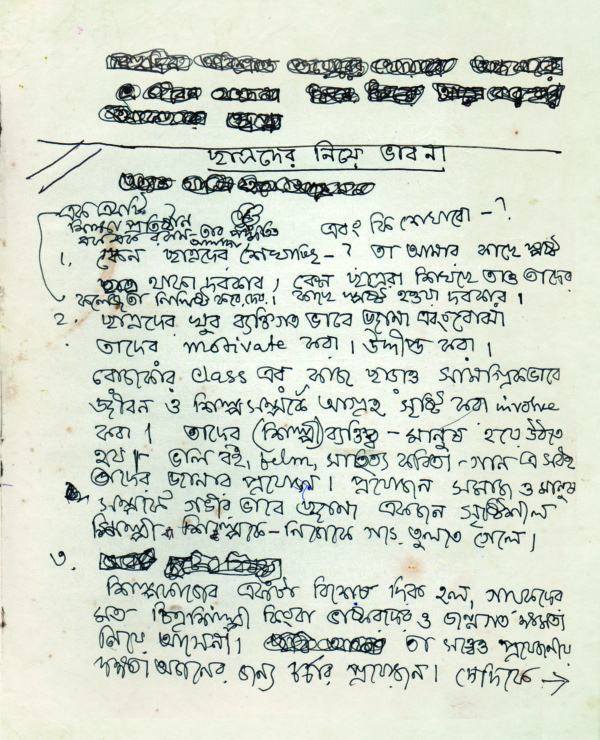 ছাত্রদের নিয়ে ভাবনা
শিক্ষা প্রতিষ্ঠান
এবং কি শেখাবো - ?
১. কেন ছাত্রদের শেখাচ্ছি - ? তা আমার কাছে স্পষ্ট
থাকা দরকার। কেন ছাত্ররা শিখছে তাও তাদের
কাছে স্পষ্ট হওয়া দরকার।
২. ছাত্রদের খুব ব্যক্তিগত ভাবে জানা এবং বোঝা
তাদের motivate করা। উদ্দীপ্ত করা।
রোজকার class এর কাজ ছাড়াও সামগ্রিকভাবে
জীবন ও শিল্প সম্পর্কে আগ্রহ সৃষ্টি করা involve
করা। তাদের (শিল্পী) ব্যক্তিত্ব - মানুষ হয়ে উঠতে
হয়। ভাল বই, film, সাহিত্য কবিতা - গান এ সবই
তাদের জানার প্রয়োজন। প্রয়োজন সমাজ ও মানুষ
সম্পর্কে গভীর ভাবে জানা একজন সৃষ্টিশীল
শিল্পী - নিজেকে গড়ে তুলতে গেলে।
৩.
শিল্পকাজের একটা বিশেষ দিক হল, গায়কদের
মত চিত্রশিল্পী কিংবা ভাস্করদের ও জন্মগত ক্ষমতা
নিয়ে আসেনা। তা সত্ত্বেও প্রয়োজনীয়
দক্ষতা অর্জনের জন্য চর্চার প্রয়োজন। সেদিকে →